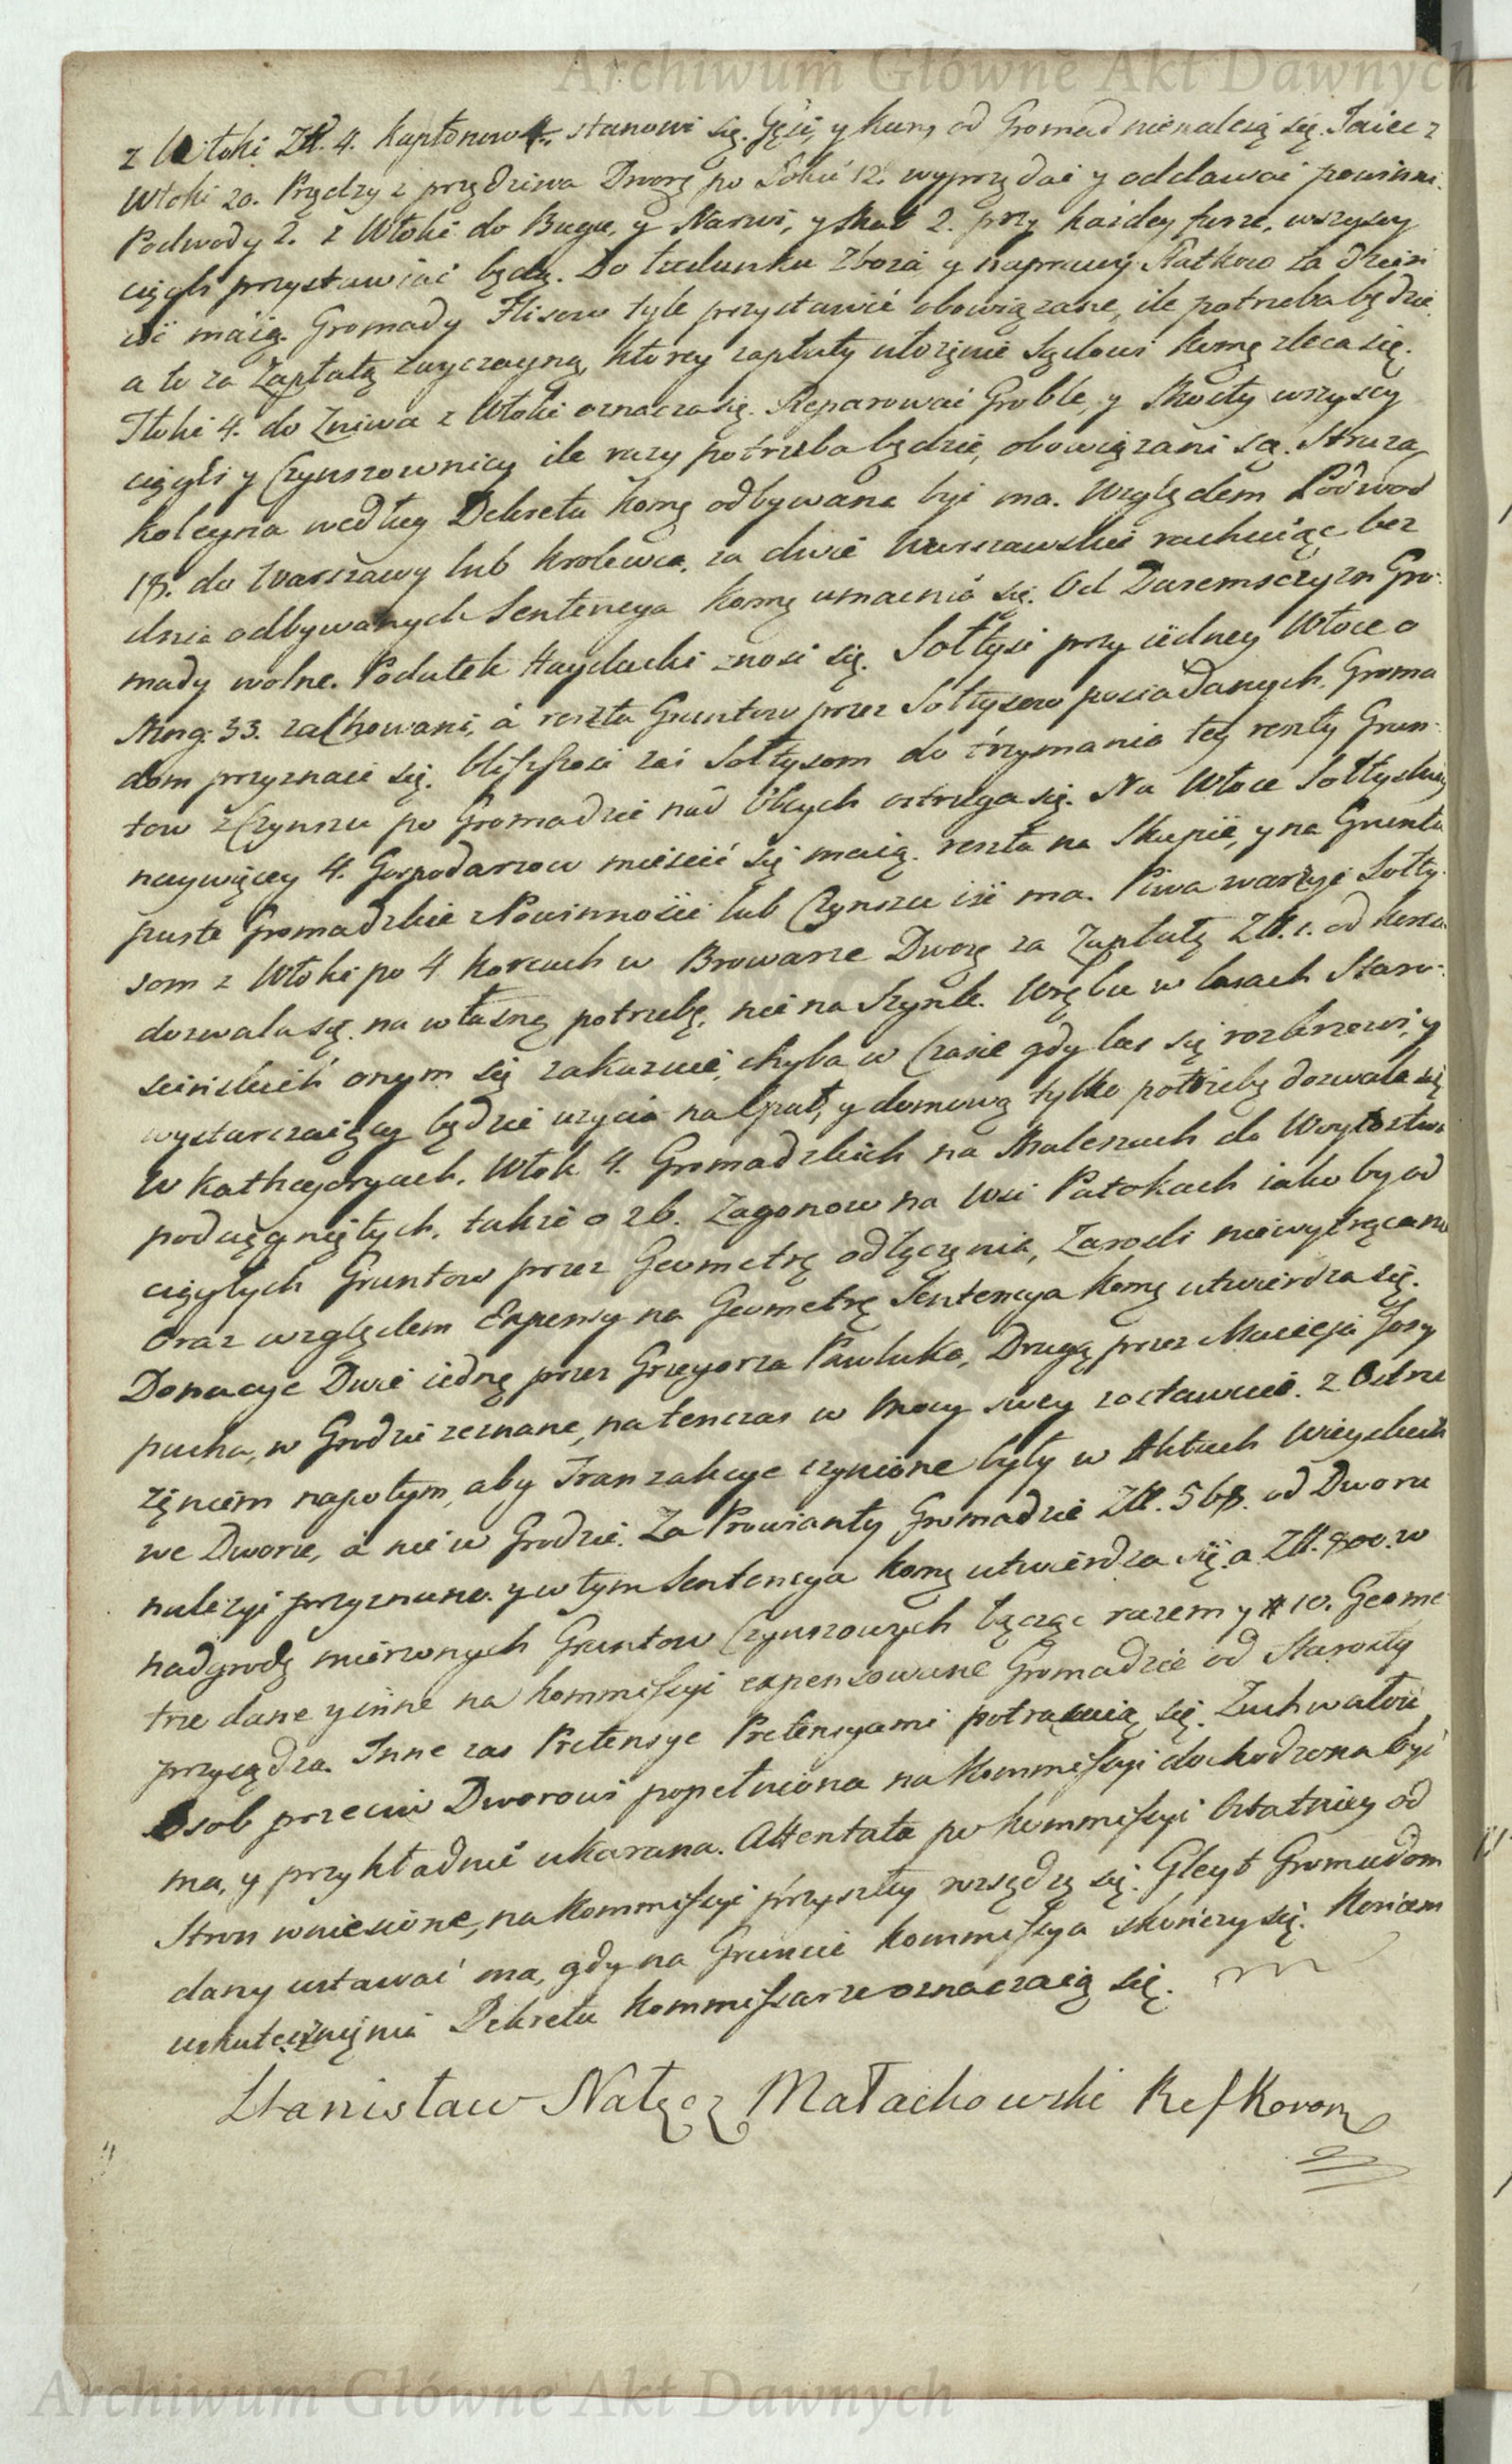 Archiwum Główne Akt Dawnych
z Włoki Zł. 4. Kapłonow 4. stanowi się. Gęsi, y Kury od Gromad nienalezą się. Jaiec z
Włoki 20. Przędzy z przędziwa Dworę po Łokci 12. wyprzędać y oddawać powinni.
Podwody 2. z Włoki do Bugu, y Narwi, y Skał 2. przy kaźdey furze, wszyscy
ciągli przystawiać będą. Do ładunku Zboża y naprawy Statkow za dzień
iść maią. Gromady Flisow tyle przystawić obowiązane, ile potrzeba będzie
a to za Zapłatą zwyczayną, ktorey zapłaty ułożęnie Sądowi Komę zleca się.
Tłoki 4. do Zniwa z Włoki oznacza się. Reparować Groble, y Mosty wszyscy
ciągli y Czynszownicy ile razy potrzeba będzie, obowiązani są. Straza
koleyna według Dekretu Komę odbywana być ma. Względem Podwod
18. do Warszawy lub Krolewca, za dwie Warszawskie rachuiąc bez
dnia odbywanych Sentencya Komę umacnia się. Od Daremsczyzn Gro-
mady wolne. Podatek Haydacki znosi się. Sołtysi przy iedney Włoce o
Morg. 33. zachowani, á reszta Gruntow przez Sołtysow posiadanych, Groma
dom przyznaie się. bliższość zaś Sołtysom do trzymania tey reszty Grun-
tow z Czynszu po Gromadzie nad Obcych ostrzega się. Na Włoce Sołtyskiey
naywięcey 4. Gospodarzow mieścić się maią. reszta na Skupie, y na Grunta
puste Gromadzkie z Powinności lub Czynszu iść ma. Piwa warżyć Sołty-
som z Włoki po 4 Korcach w Browarze Dworę za Zapłatą Zł. 1. od Korca
dozwala się, na własną potrzebę, nie na Szynk. Wrębu w lasach Staro-
scińskich onym się zakazuie, chyba w Czasie gdy las się rozkrzewi, y
wystarczaiący będzie uzycia na Opał, y domową tylko potrzebę dozwala się
w Kathegoryach. Włok 4. Gromadzkich na Maleszach do Woytostwa
podciągniętych, także o 26. Zagonow na Wsi Patokach iakoby od
ciągłych Gruntow przez Geometrę odłączęnia, Zarok niewytrącane
oraz względem Expensy na Geometrę Sentencya Komę utwierdza się.
Donacye Dwie iedną przez Grzegorza Pawluka, Drugą przez Macieja Jary
pucha, w Grodzie zeznane, na tenczas w Mocy swey zostawuie. z Ostrze
żęniem napotym, aby Tranzakcye czynione były w Aktach Wieyskich
we Dworze, á nie w Grodzie. Za Prowianty Gromadzie Zł. 568. od Dworu
należyć przyznano. y w tym Sentencya Komę utwierdza się. a Zł. 800. w
nadgrodę mierzonych Gruntow Czynszowych łącząc razem y # 10. Geome
trze dane y inne na Kommissyi expensowane Gromadzie od Starosty
przysądza. Inne zas Pretensye Pretensyami potrącaią się. Zuchwałość
Osob przeciw Dworowi popełniona na Kommissyi dochodzona być
ma, y przykładnie ukarana. Attentata po Kommissyi Ostatniey od
Stron wniesione, na Kommissyi przyszłey rozsądzą się. Gleyt Gromadom
dany ustawać ma, gdy na Gruncie Kommissya skończy się. Koncem
uskutecznięnia Dekretu Kommissarze oznaczaią się.
Stanisław Nałęcz Małachowski Ref Koronę
Archiwum Główne Akt Dawnych